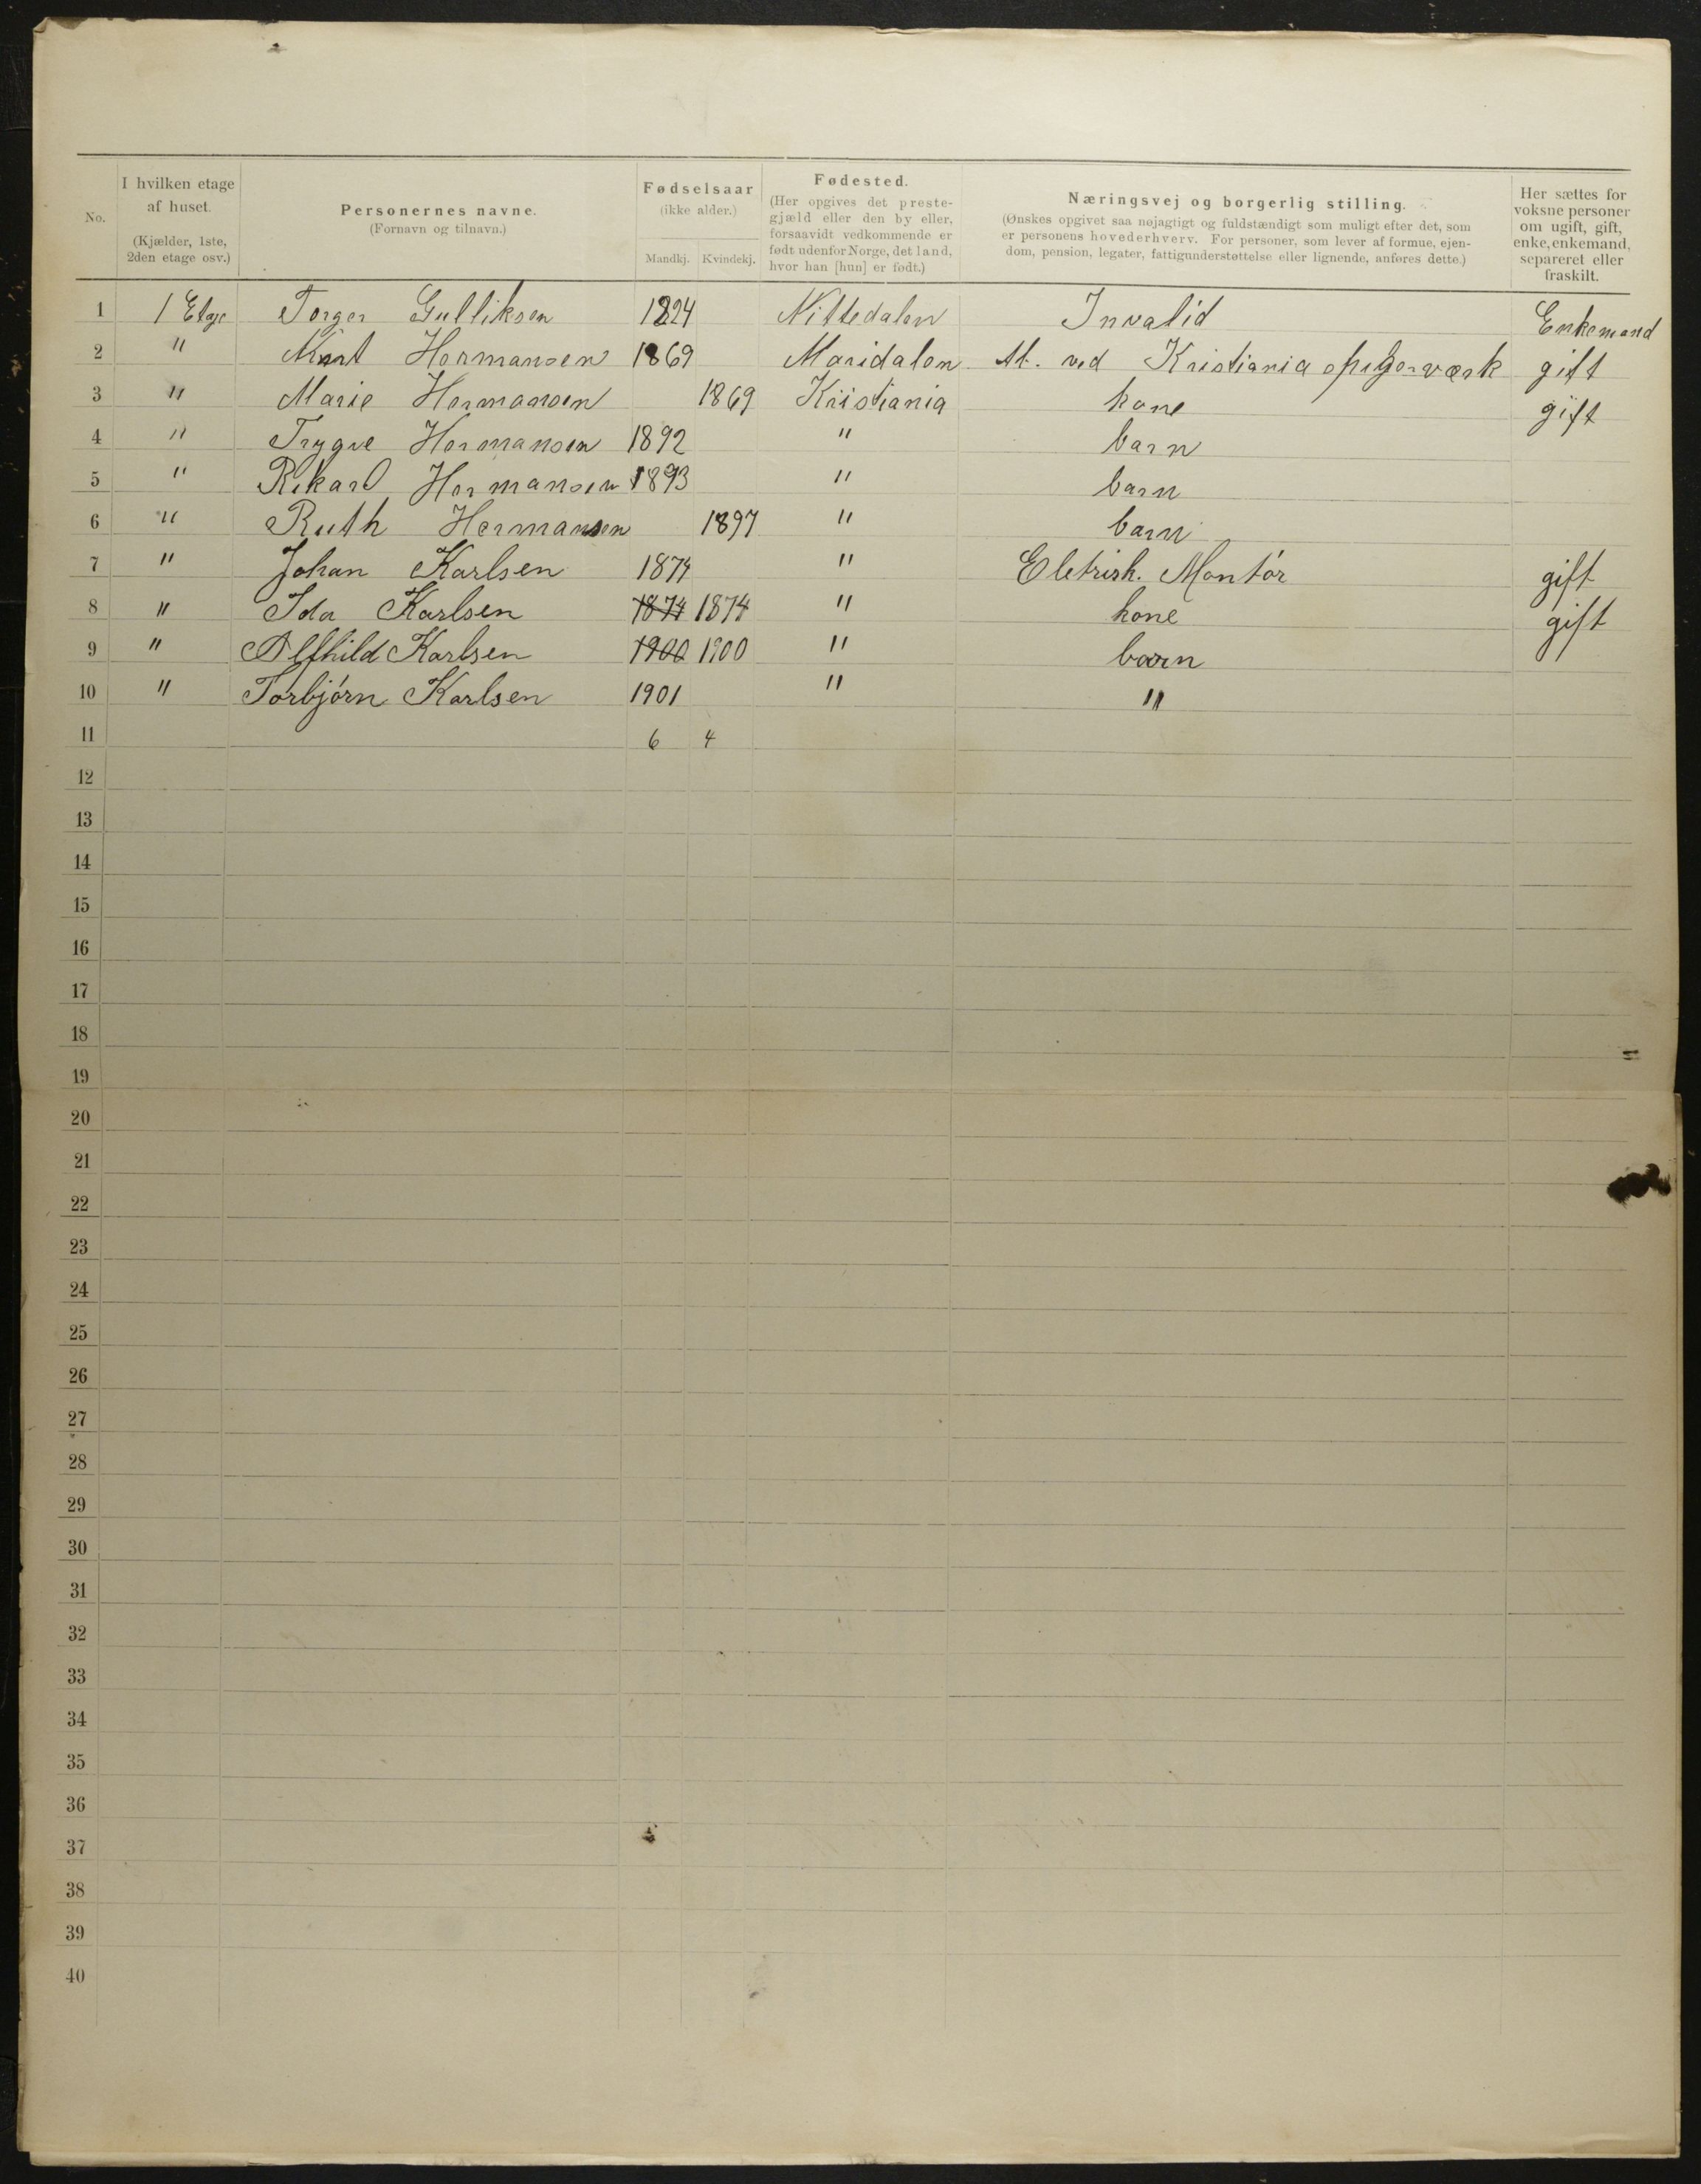 No. | I hvilken etage af huset. (Kjælder, 1ste, 2den etage osv.) | Personernes navne. (Fornavn og tilnavn.) | Fødselsaar (ikke alder.) Mandkj. | Kvindekj. | Fødested. (Her opgives det prestegjæld eller den by eller, forsaavidt vedkommende er født udenfor Norge, det land, hvor han [hun] er født.) | Næringsvej og borgerlig stilling. (Ønskes opgivet saa nøjagtigt og fuldstændigt som muligt efter det, som er personens hovederhverv. For personer, som lever af formue, ejendom, pension, legater, fattigunderstøttelse eller lignende, anføres dette.) | Her sættes for voksne personer om ugift, gift, enke, enkemand, separeret eller fraskilt.
1 | 1 Etge | Torger Gulliksen | 1824 | | Nittedalen | Invalid | Enkemand
2 | " | Knut Hermansen | 1869 | | Maridalen | At. ved Kristiania spigerværk | gift
3 | " | Marie Hermansen | | 1869 | Kristiania | kone | gift
4 | " | Trygve Hermansen | 1892 | | " | barn
5 | " | Rikard Hermansen | 1893 | | " | barn
6 | " | Ruth Hermansen | | 1897 | " | barn
7 | " | Johan Karlsen | 1874 | | " | Eletrisk. Montór | gift
8 | " | Ida Karlsen | 1874 | 1874 | " | kone | gift
9 | " | Alfhild Karlsen | 1900 | 1900 | " | barn
10 | " | Torbjórn Karlsen | 1901 | | " | "
11 | | | 6 | 4
12
13
14
15
16
17
18
19
20
21
22
23
24
25
26
27
28
29
30
31
32
33
34
35
36
37
38
39
40